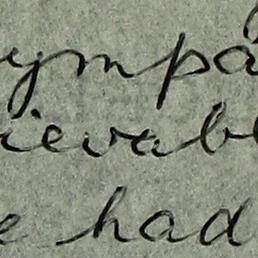 ympa
ievab
e had